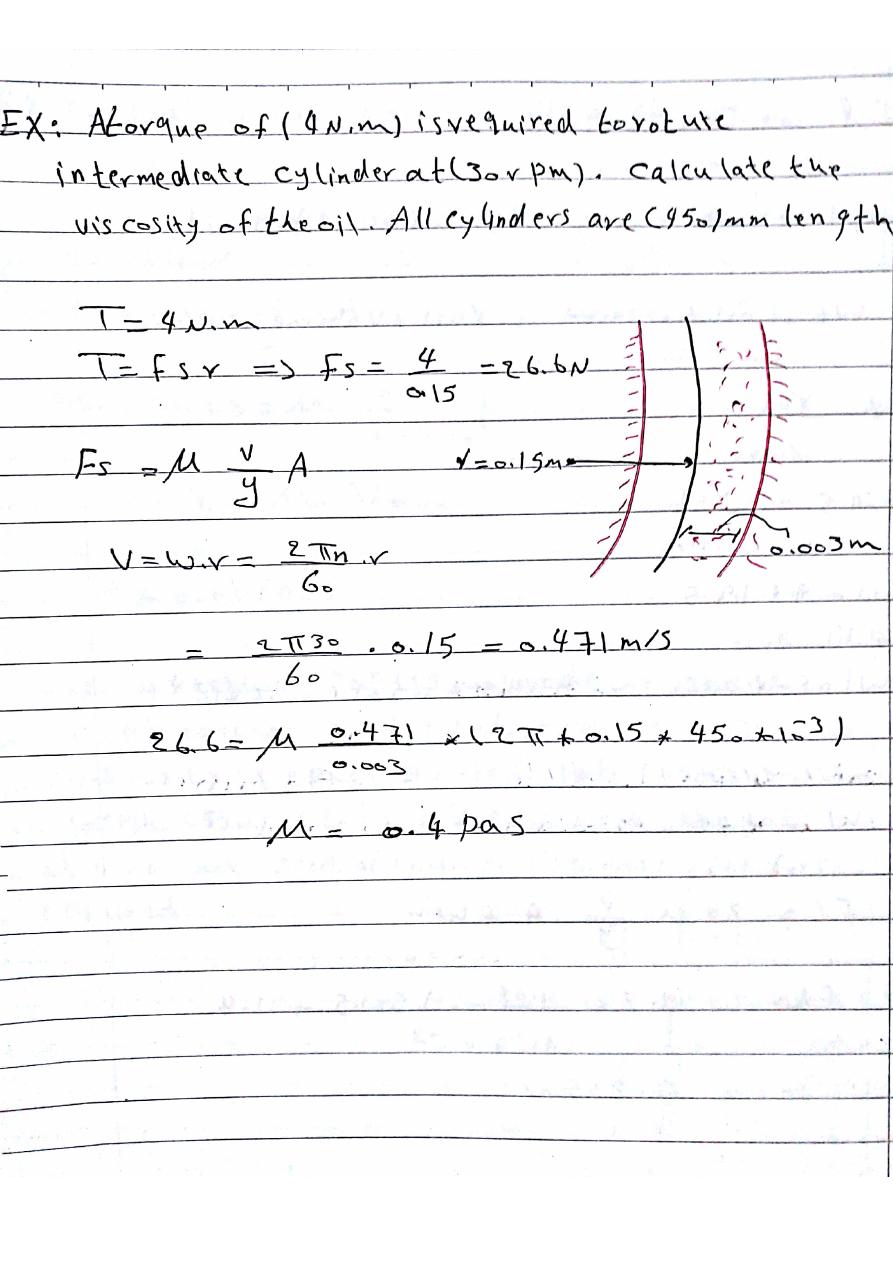 EX: A torque of (4N.m) is required to rotute
intermediate cylinder at (30 r pm). calculate the
viscosity of the oil. All cylinders are (450) mm length
T = 4 N.m
T = Fs r => Fs = 4/0.15 = 26.6 N
Fs = μ v/y A
r = 0.15m
0.003m
V = w.r = 2πn/60 .r
= 2π30/60 . 0.15 = 0.471 m/s
26.6 = μ 0.471/0.003 * (2π * 0.15 * 450 * 10^-3)
μ = 0.4 pas